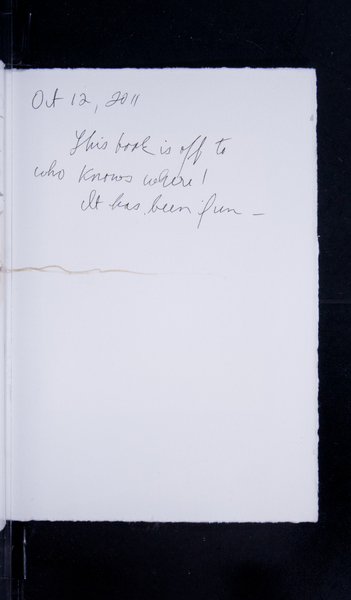 Oct 12, 2011
This book is off to
who knows where!
It has been fun –